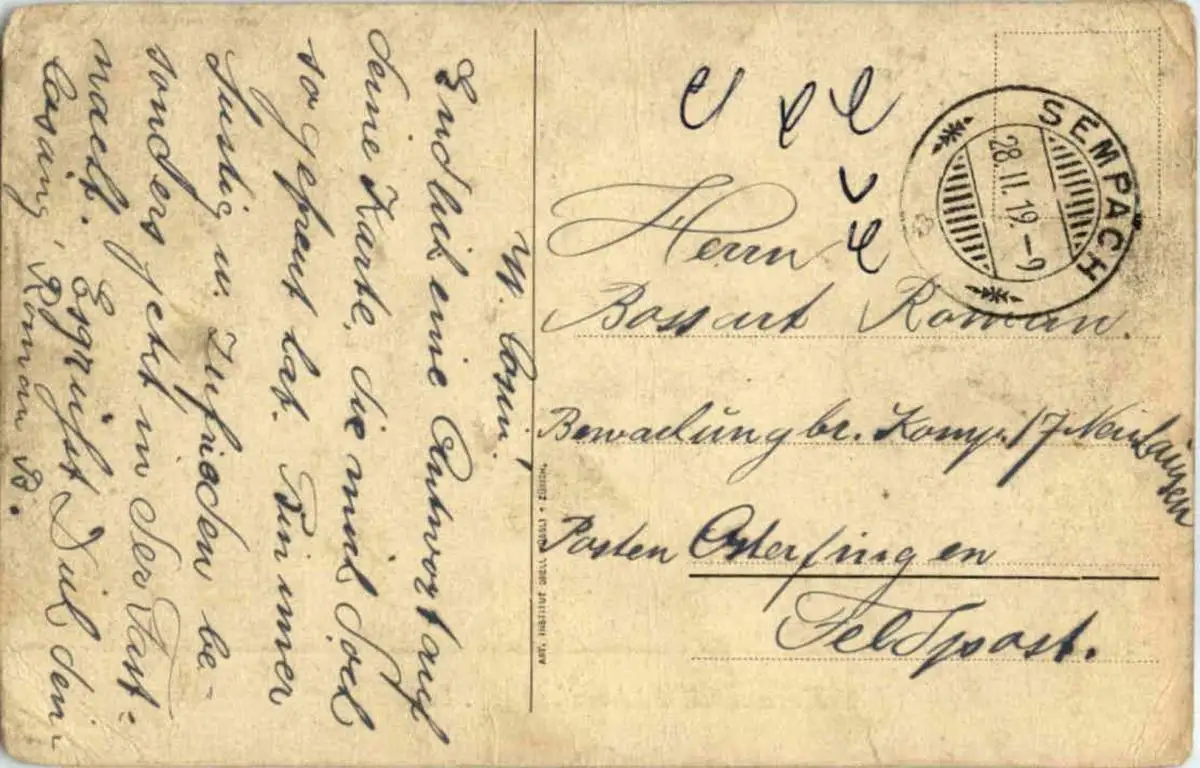 W. Cosin!
Endlich eine Antwort auf
deine Karte, die mich doch
so gefreut hat. Bin immer
lustig u. Zufrieden be-
sonders jetzt in der Fast-
nacht. Es grüsst Dich dein
Roman B.
Herrn
Bossart Roman.
Bewachungbr. Komp. 17 Neu
Posten Osterfingen
Feldpost.
SEMPACH
28.II.19.-9
ART. INSTITUT ORELL FÜSSLI • ZÜRICH.